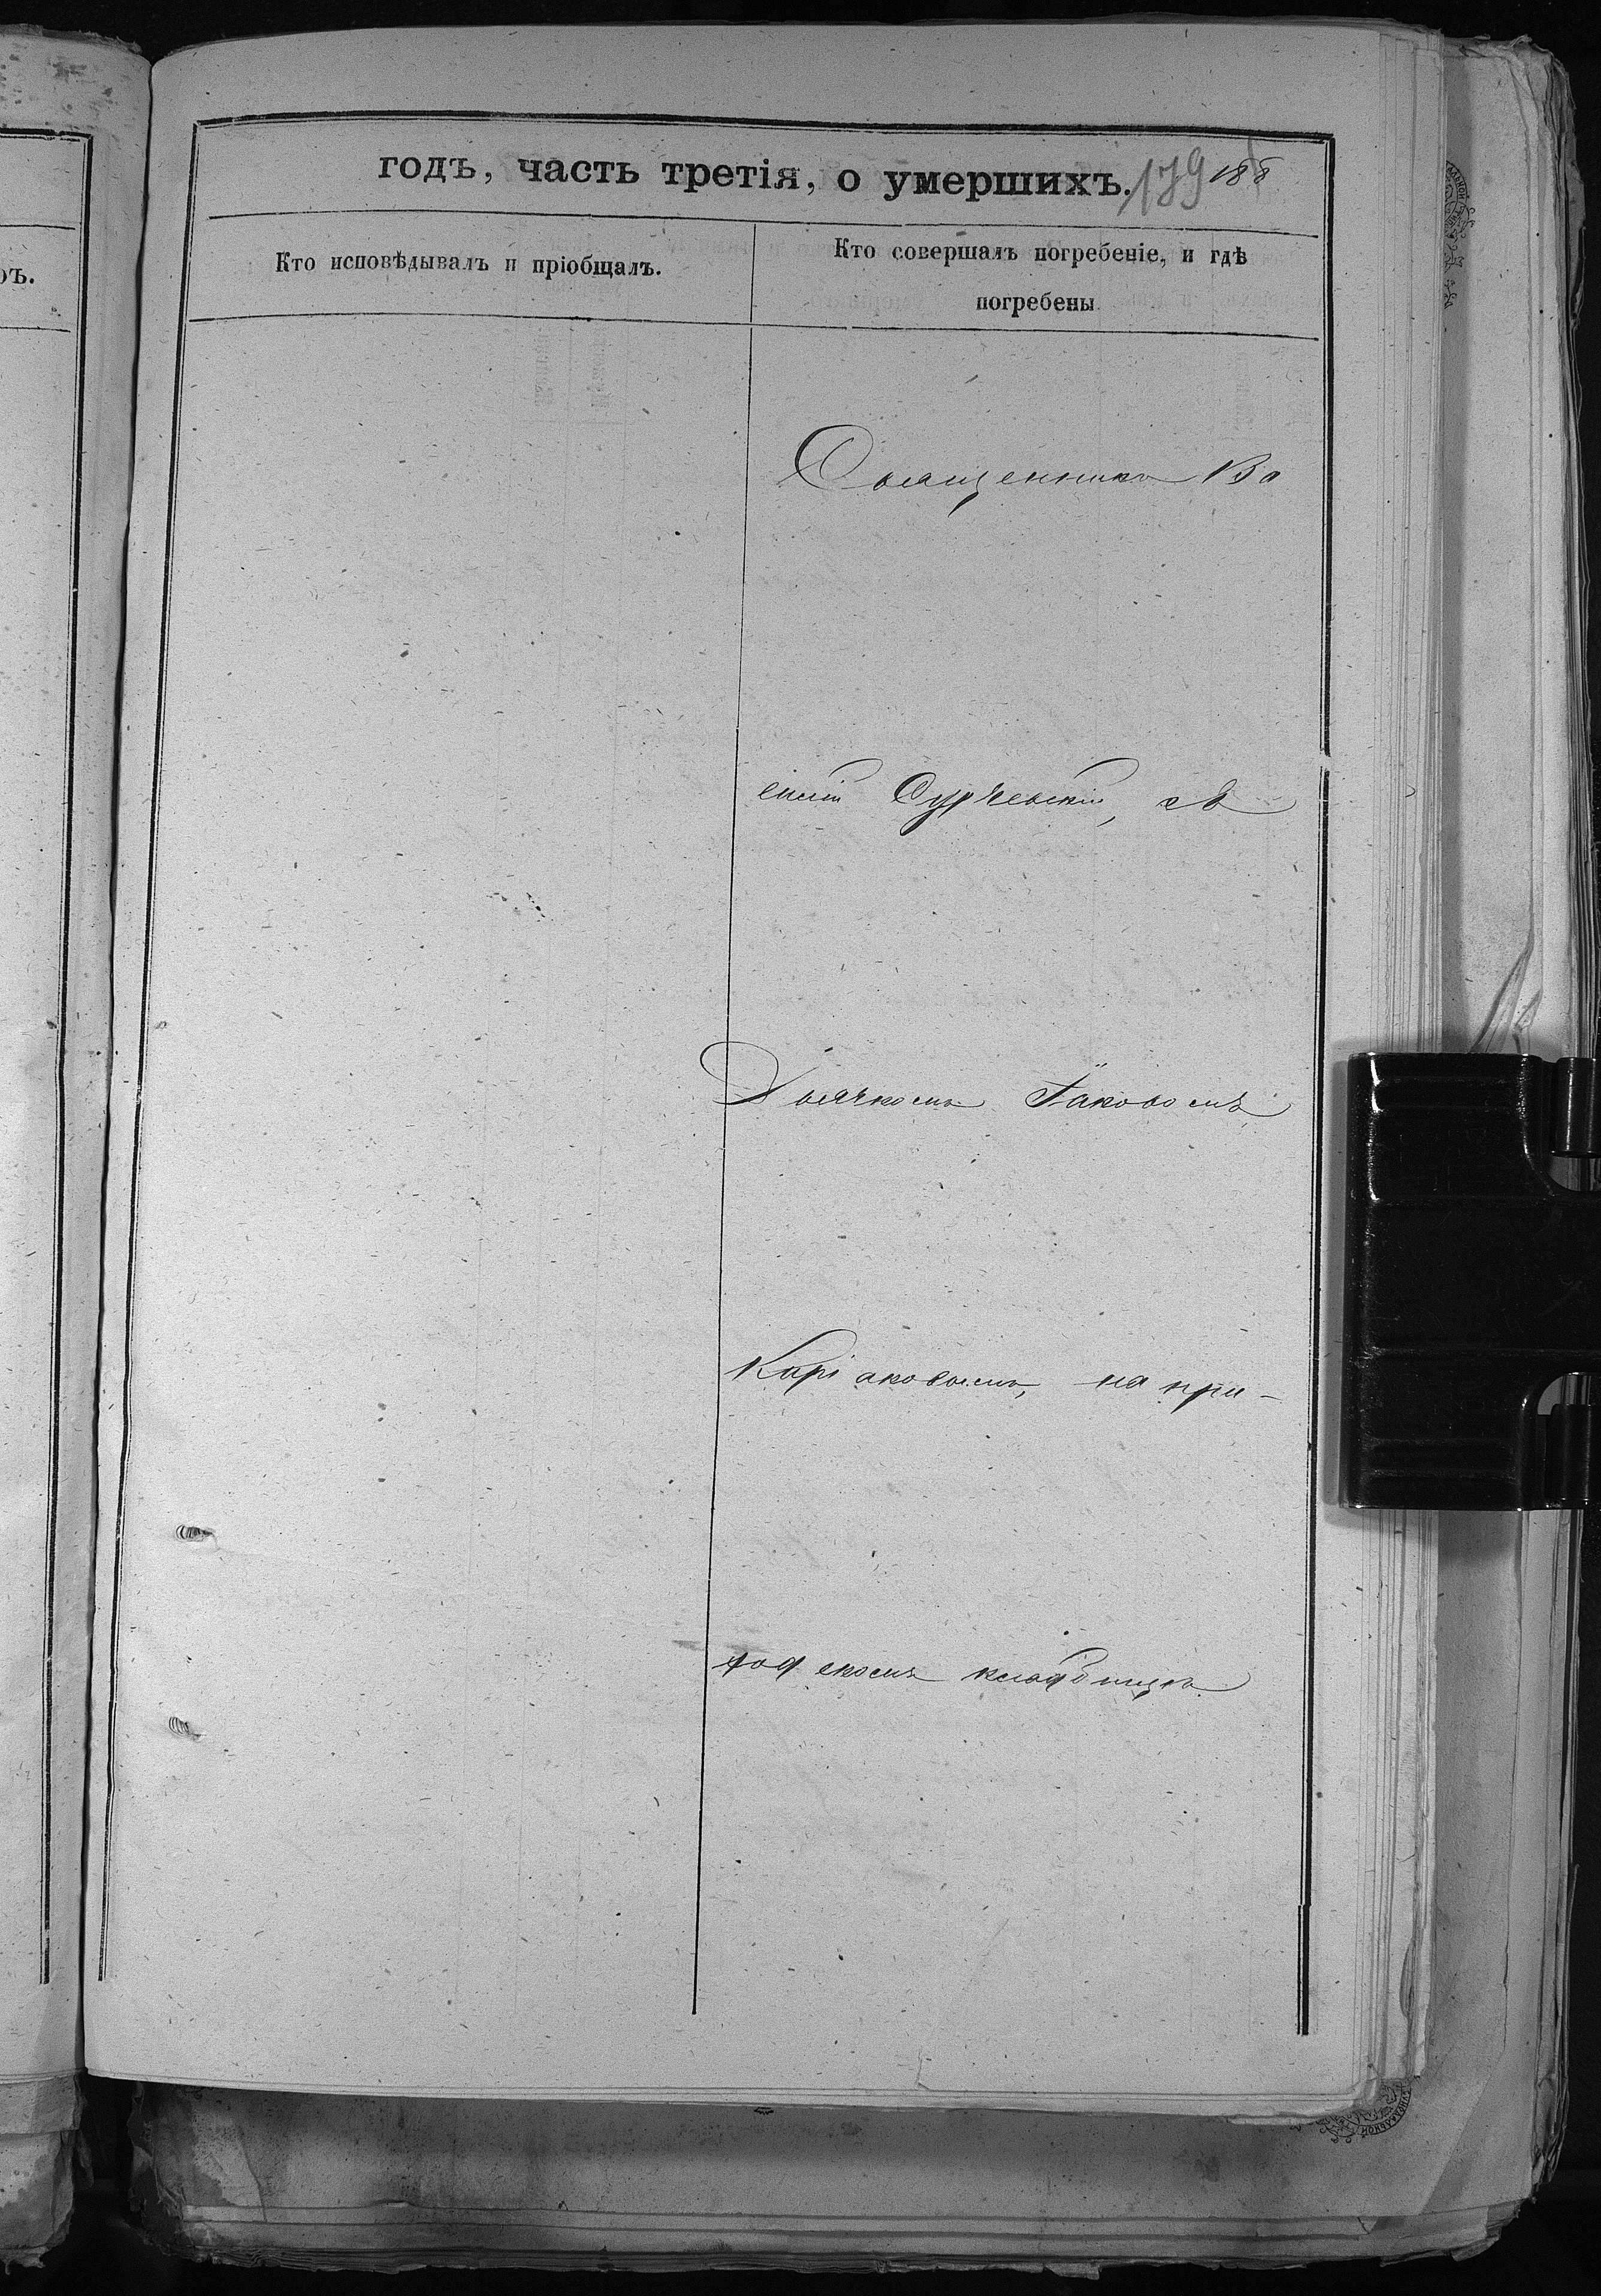 годъ, часть третія, о умершихъ.
179 188
Кто исповѣдывалъ и пріобщалъ.
Кто совершалъ погребеніе, и гдѣ
погребены
ѣ.
Священникъ Ва
силій Сурчевскій, съ
Дьячкомъ Іаковомъ
Каріаковымъ, на при-
ходскомъ кладбищѣ